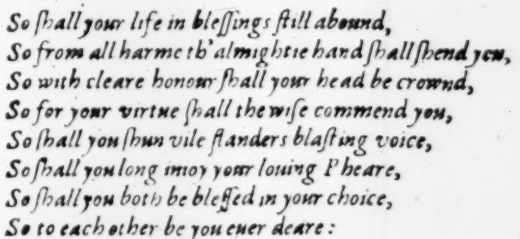 So ſhall your life in bleſſings ſtill abound,
So from all harme th' almightie hand ſhall ſhend you,
So with cleare honour ſhall your head be crownd,
So for your virtue ſhall the wiſe commend you,
So ſhall you ſhun vile ſlanders blaſting voice,
So ſhall you long inioy your louing Pheare,
So ſhall you both be bleſſed in your choice,
So to each other be you euer deare: